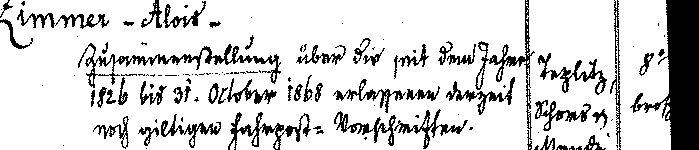 Zimmer - Alois -
Zusammenstellung über die seit dem Jahre Teplitz, 8°
1826 bis 31. October 1868 erlassenen derzeit brosch
noch giltigen Fahrpost- Vorschriften.